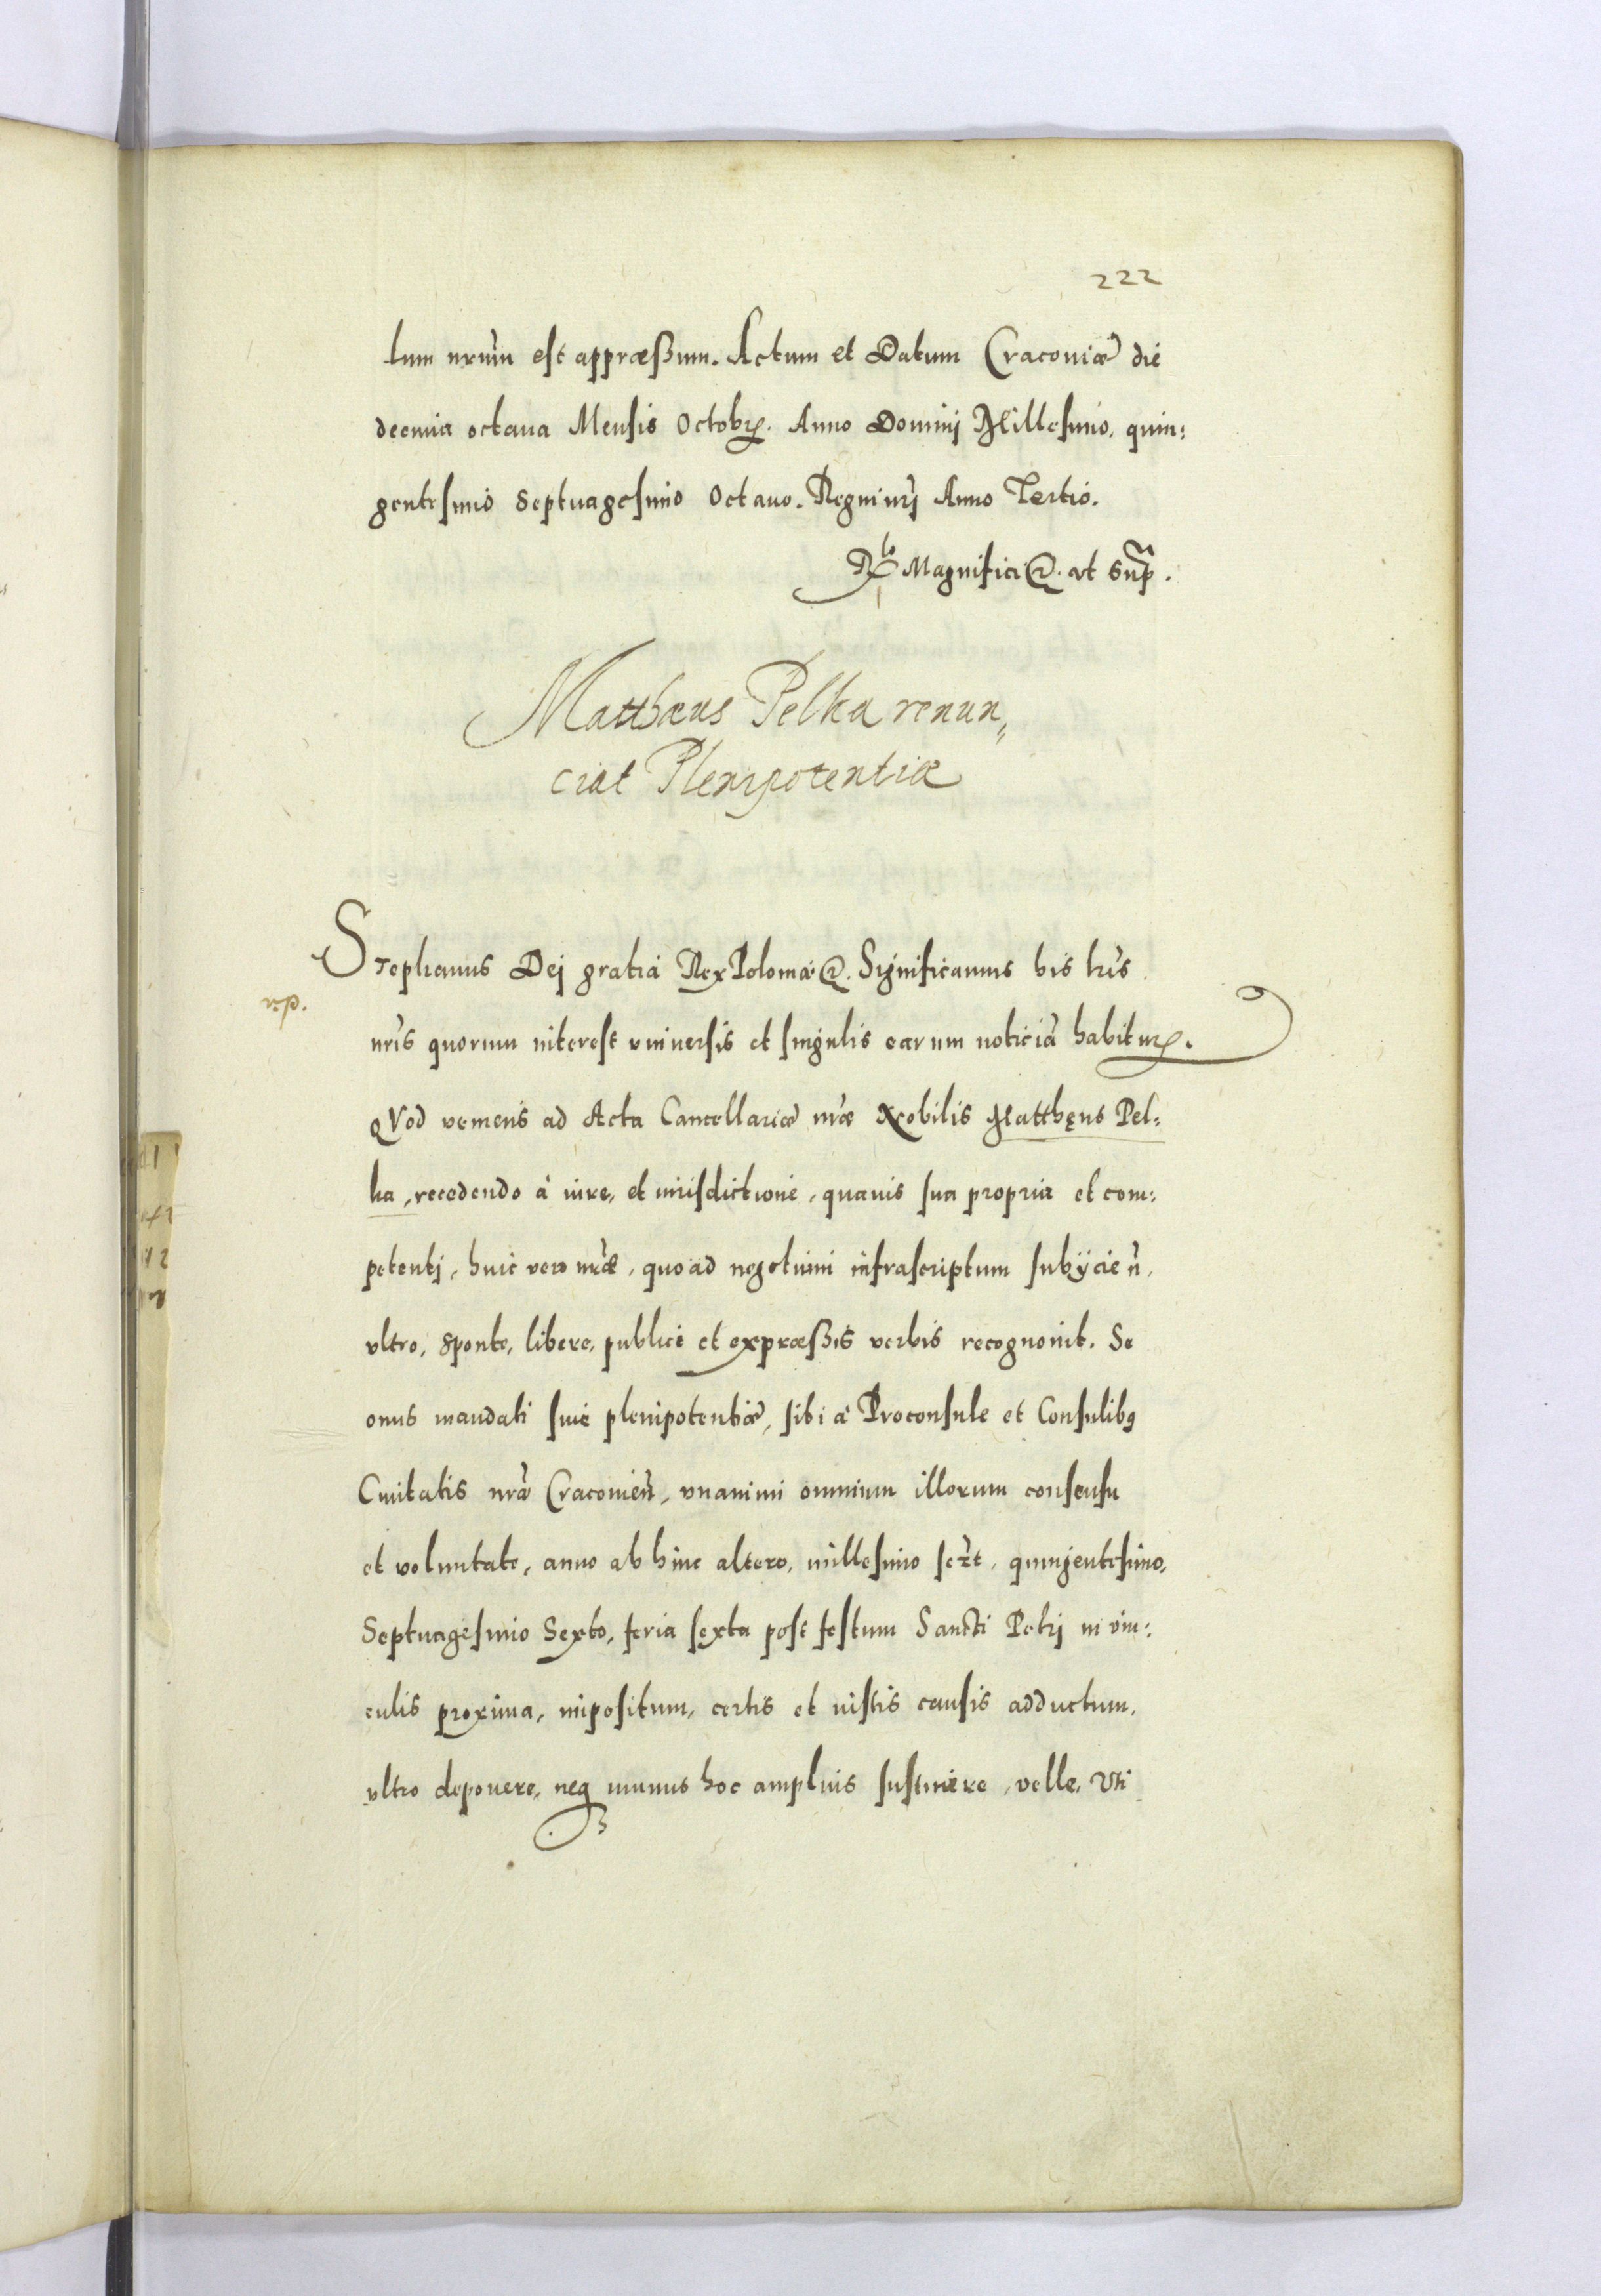 222
lum nrũm est appræßum. Actum et Datum Cracoviæ die
decima octaua Mensis Octobr. Anno Dominj Millesimo, quin:
gentesimo Septuagesimo Octauo. Regni nrj Anno Tertio.
Rlo Magnifici &. vt Sup.
Matthæus Pelka renun„
ciat Plenipotentiæ
Stephanus Dej gratia Rex Poloniæ &. Significamus his lris
nris quorum interest vniuersis et singulis earum noticiã habitur.
QVod veniens ad Acta Cancellariæ nræ Nobilis Matthęus Pel:
ka, recedendo à iure, et iurisdictione, quauis sua propria et com:
petentj, huic vero nræ, quoad negotium infrascriptum subÿcieñ,
vltro, sponte, libere, publicè et expræßis verbis recognouit. Se
onus mandati siue plenipotentiæ, sibi à Proconsule et Consulibq
Ciuitatis nræ Cracouieñ, vnanimi omnium illorum consensu
et voluntate, anno ab hinc altero, millesimo sext, quingentesimo,
Septuagesimo Sexto, feria sexta post festum Sancti Petrj in vin:
culis proxima, impositum, certis et iustis causis adductum,
vltro deponere, neq munus hoc amplius sustinere, velle. Uti